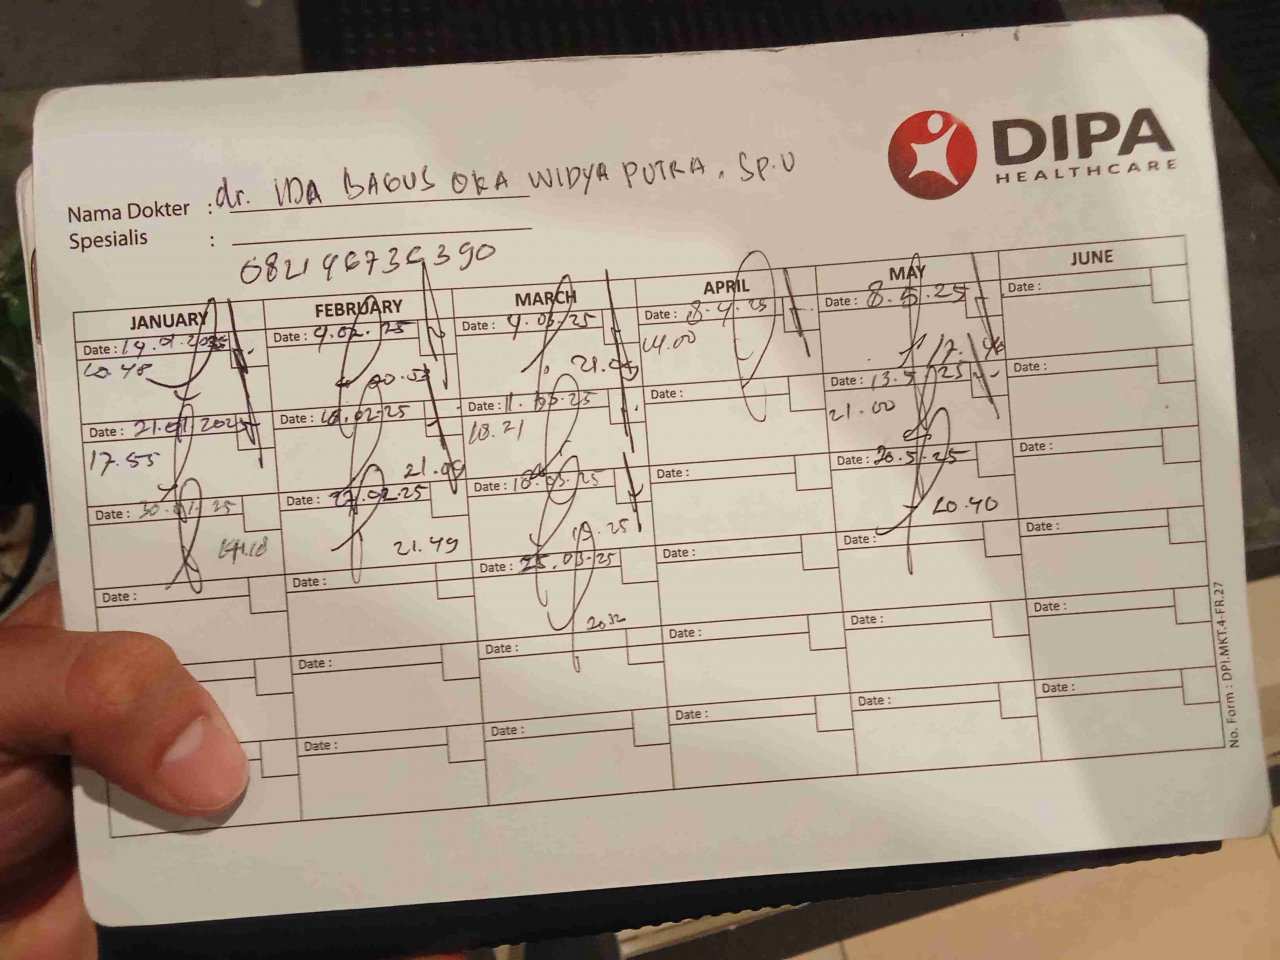 DIPA
HEALTHCARE
Nama Dokter : dr. IDA BAGUS OKA WIDYA PUTRA, SP.U
Spesialis :
JANUARY FEBRUARY MARCH APRIL MAY JUNE
Date : 14.01.2025 Date : 4.02.25 Date : 4.03.25 Date : 8.4.25 Date : 8.5.25 Date :
20.53 21.05 14.00 17.46
Date : 21.01.2025 Date : 18.02.25 Date : 11.03.25 Date : Date : 13.5.25 Date :
17.55 21.09 18.21 21.00
Date : 30.01.25 Date : 27.02.25 Date : 18.03.25 Date : Date : 20.5.25 Date :
21.49 19.25 20.40
Date : Date : Date : 25.03.25 Date : Date : Date :
20.32
Date : Date : Date : Date : Date :
Date : Date : Date : Date : Date :
No. Form : DPI.MKT.4-FR.27